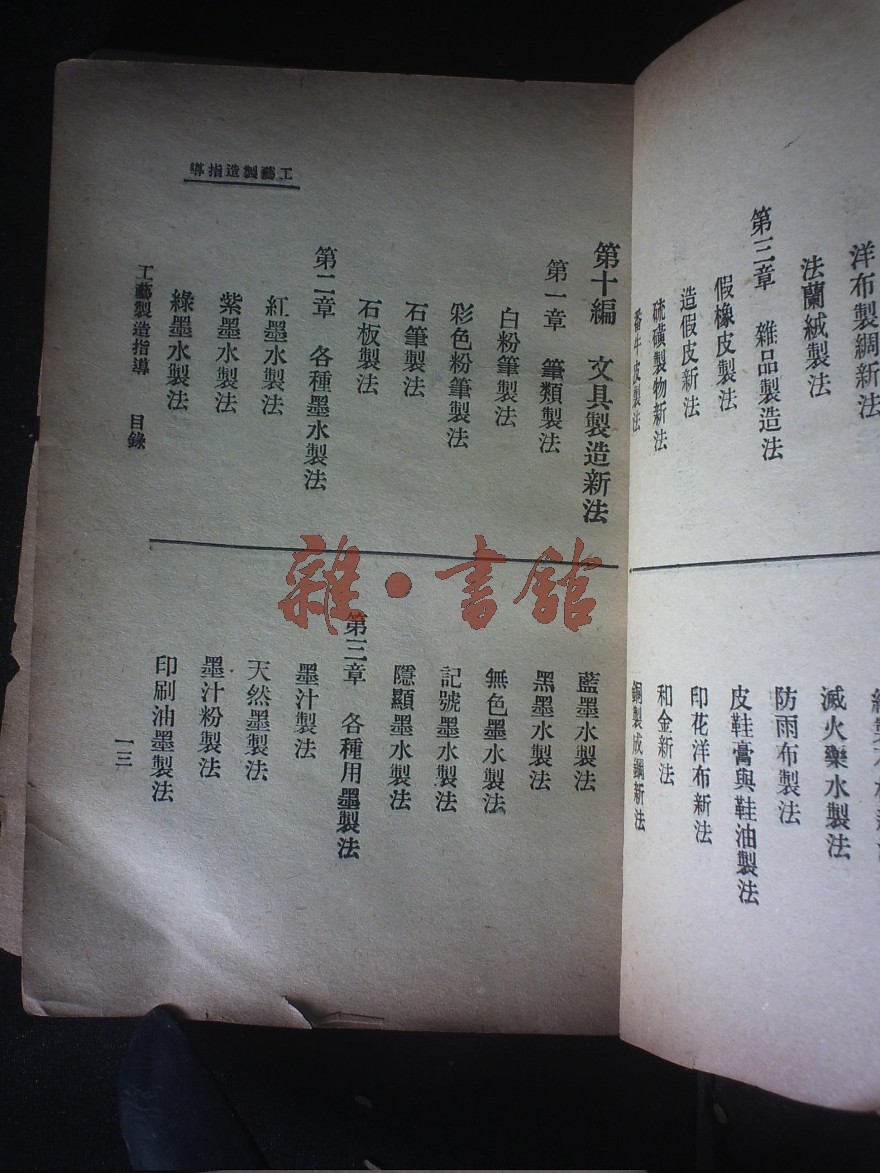 洋布製綢新法
法蘭絨製法
第三章　雜品製造法
假橡皮製法
造假皮新法
硫磺製物新法
番牛皮製法
滅火藥水製法
防雨布製法
皮鞋膏與鞋油製法
印花洋布新法
和金新法
銅製成鋼新法
工藝製造指導
第十編　文具製造新法
第一章　筆類製法
白粉筆製法
彩色粉筆製法
石筆製法
石板製法
第二章　各種墨水製法
紅墨水製法
紫墨水製法
綠墨水製法
藍墨水製法
黑墨水製法
無色墨水製法
記號墨水製法
隱顯墨水製法
第三章　各種用墨製法
墨汁製法
天然墨製法
墨汁粉製法
印刷油墨製法
工藝製造指導　目錄
一三
雜·書館